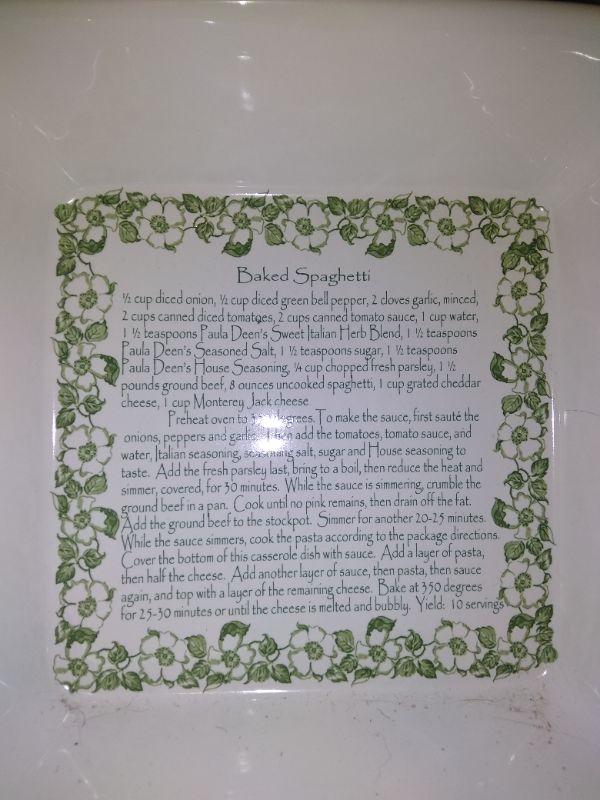 Baked Spaghetti
½ cup diced onion, ½ cup diced green bell pepper, 2 cloves garlic, minced,
2 cups canned diced tomatoes, 2 cups canned tomato sauce, 1 cup water,
1 ½ teaspoons Paula Deen's Sweet Italian Herb Blend, 1 ½ teaspoons
Paula Deen's Seasoned Salt, 1 ½ teaspoons sugar, 1 ½ teaspoons
Paula Deen's House Seasoning, ¼ cup chopped fresh parsley, 1 ½
pounds ground beef, 8 ounces uncooked spaghetti, 1 cup grated cheddar
cheese, 1 cup Monterey Jack cheese
Preheat oven to degrees. To make the sauce, first sauté the
onions, peppers and garlic. Then add the tomatoes, tomato sauce, and
water, Italian seasoning, seasoning salt, sugar and House seasoning to
taste. Add the fresh parsley last, bring to a boil, then reduce the heat and
simmer, covered, for 30 minutes. While the sauce is simmering, crumble the
ground beef in a pan. Cook until no pink remains, then drain off the fat.
Add the ground beef to the stockpot. Simmer for another 20-25 minutes.
While the sauce simmers, cook the pasta according to the package directions.
Cover the bottom of this casserole dish with sauce. Add a layer of pasta,
then half the cheese. Add another layer of sauce, then pasta, then sauce
again, and top with a layer of the remaining cheese. Bake at 350 degrees
for 25-30 minutes or until the cheese is melted and bubbly. Yield: 10 servings